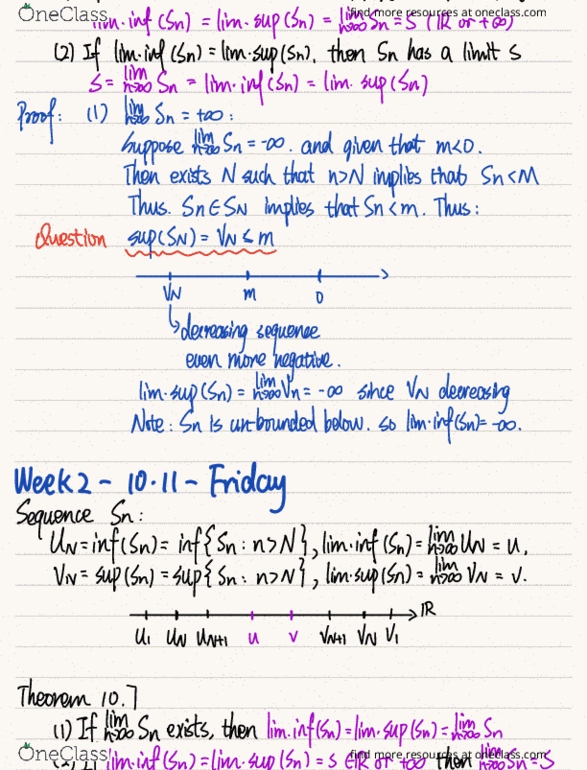 OneClass
find more resources at oneclass.com
lim·inf (Sn) = lim·sup (Sn) = lim n→∞ Sn = S (IR or +∞)
(2) If lim·inf (Sn) = lim·sup (Sn), then Sn has a limit S
S = lim n→∞ Sn = lim·inf (Sn) = lim·sup (Sn)
Proof: (1) lim n→∞ Sn = +∞ :
Suppose lim n→∞ Sn = -∞. and given that m<0.
Then exists N such that n>N implies that Sn<M
Thus. Sn∈SN implies that Sn<m. Thus:
Question sup(SN) = VN ≤ m
VN m 0
↳ decreasing sequence
even more negative.
lim·sup (Sn) = lim n→∞ Vn = -∞ since VN decreasing
Note: Sn is un-bounded below. so lim·inf(Sn)= -∞.
Week 2 - 10·11 - Friday
Sequence Sn:
UN = inf(Sn) = inf{Sn : n>N}, lim·inf (Sn) = lim n→∞ UN = u,
VN = sup(Sn) = sup{Sn : n>N}, lim·sup(Sn) = lim n→∞ VN = v.
IR
U1 UN UN+1 u v VN+1 VN V1
Theorem 10.7
(1) If lim n→∞ Sn exists, then lim·inf(Sn) = lim·sup (Sn) = lim n→∞ Sn
OneClass
find more resources at oneclass.com
lim·inf (Sn) = lim·sup (Sn) = S ∈IR or +∞ then lim n→∞ Sn = S